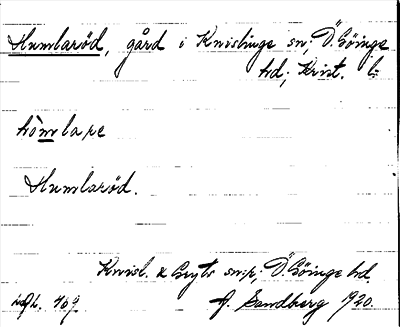 Humlaröd, gård i Knislinge sn; Ö. Göinge
hd; Krist. l:
hòmlare
Humlaröd.
Knisl. & Gryts snr; Ö. Göinge hd.
A. Sandberg 1920.